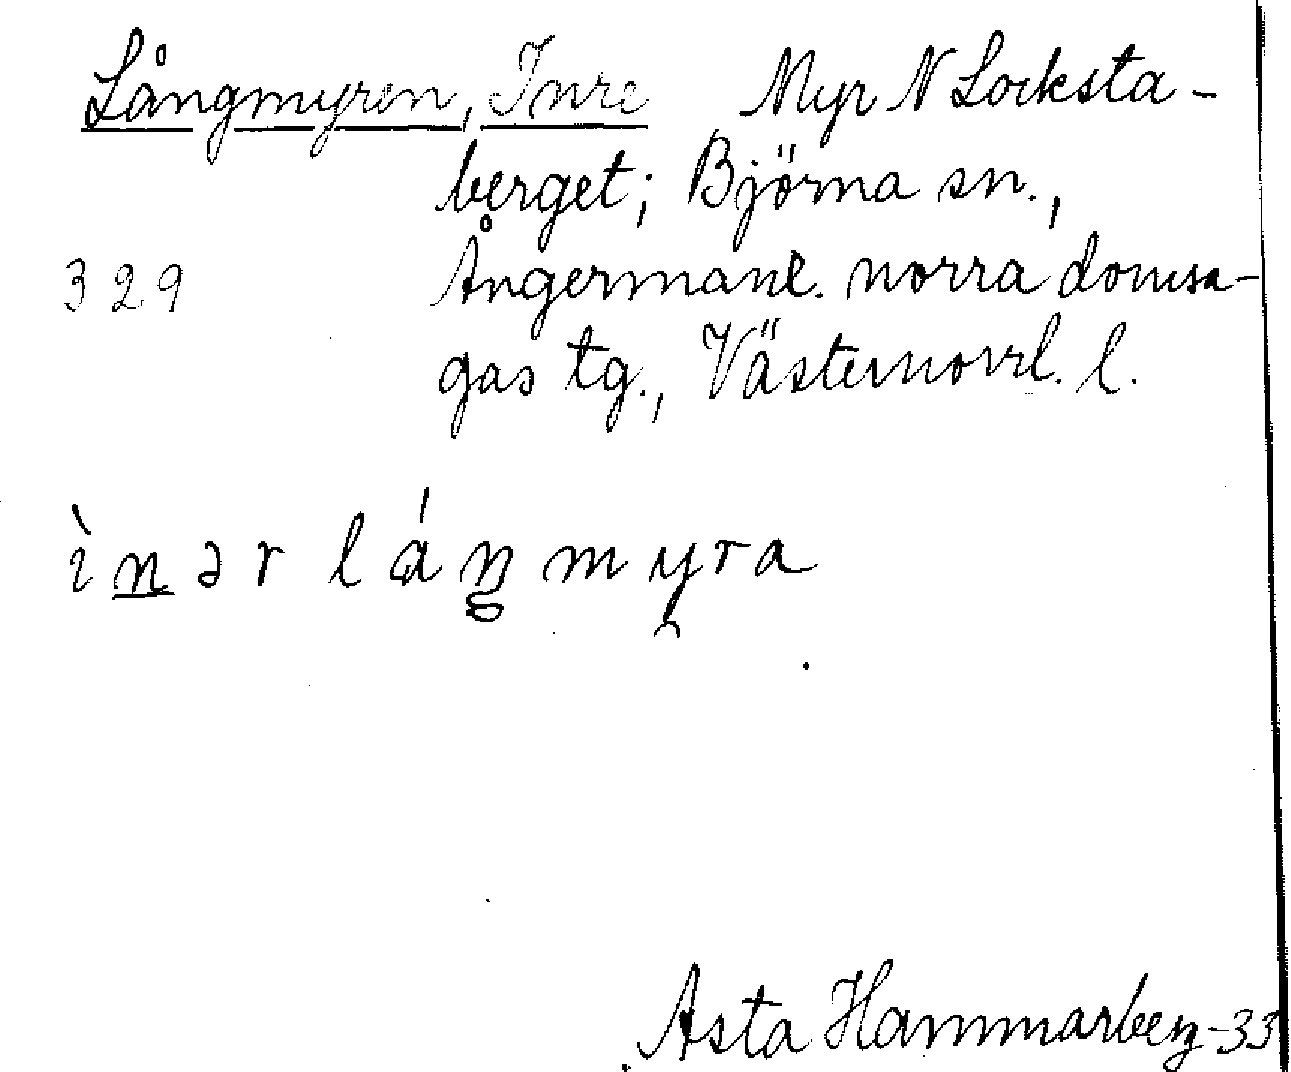 Långmyren, Inre Myr N Locksta-
berget; Björna sn.,
329 Ångermanl. norra domsa-
gas tg., Västernorrl. l.
ìn̲ər láŋmyra
Asta Hammarberg-33